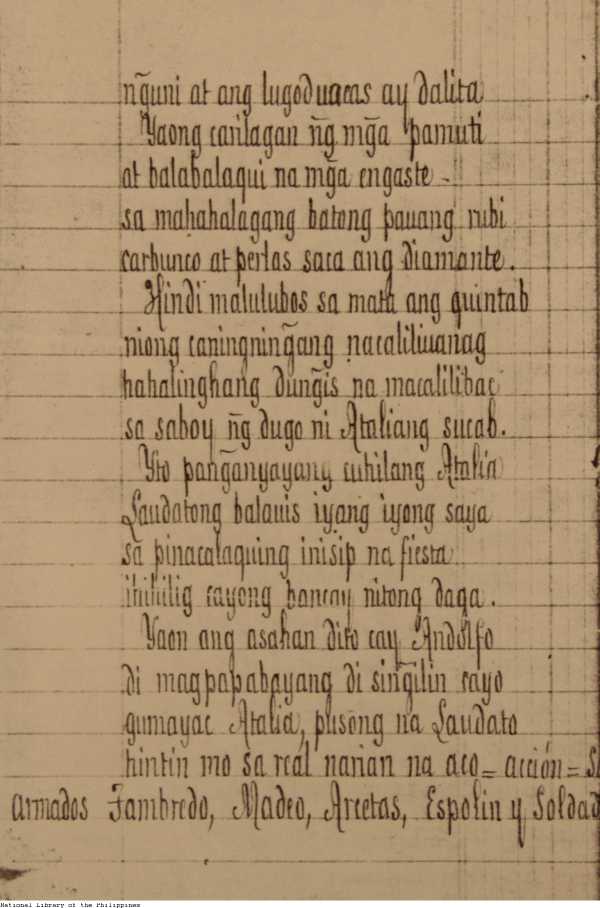 n̄guni at ang lugod uacas ay dalita
Yaong carilagan n̄g mḡa pamuti
at balabalaqui na mḡa engaste -
sa mahahalagang batong pauang rubi
carbunco at perlas saca ang diamante.
Hindi malulubos sa mata ang quintab
niong caningnin̄gang nacaliliuanag
hahalinghang dun̄gis na macalilibac
sa saboy n̄g dugo ni Ataliang sucab.
Yto pan̄ganyayang cuhilang Atalia
Laudatong balauis iyang iyong saya
sa pinacalaquing inisip na fiesta
ihihilig cayong bancay nitong daga.
Yaon ang asahan dito cay Andolfo
di magpapabayang di sin̄gilin cayo
gumayac Atalia, pusong na Laudato
hintin mo sa real narian na aco = acción = S
armados Fambredo, Madeo, Arcetas, Espolin y Soldad
National Library of the Philippines